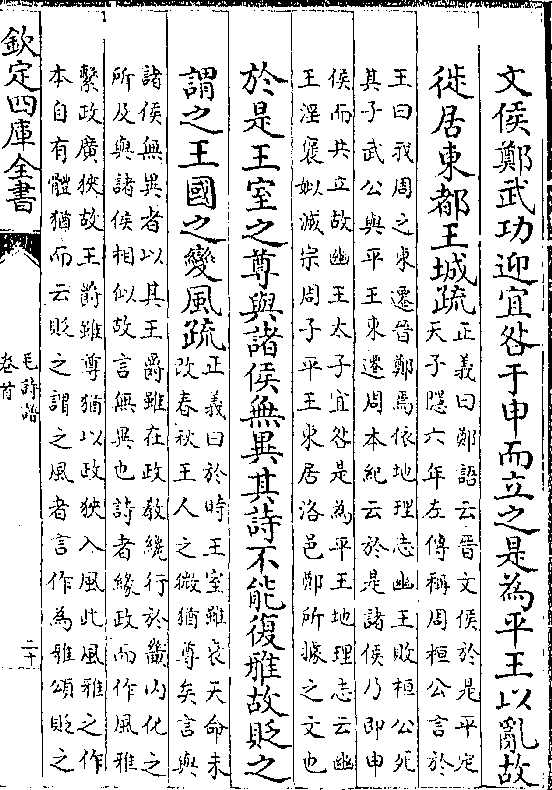 文侯鄭武功迎宜咎于申而立之是為平王以亂故
徙居東都王城疏
正義曰鄭語云晉文侯於是平定
天子隱六年左傳稱周桓公言於
王曰我周之東遷晉鄭焉依地理志幽王敗桓公死
其子武公與平王東遷周本紀云於是諸侯乃即申
侯而共立故幽王太子宜咎是為平王地理志云幽
王淫褒姒滅宗周子平王東居洛邑鄭所據之文也
於是王室之尊與諸侯無異其詩不能復雅故貶之
謂之王國之變風疏
正義曰於時王室雖衰天命未
改春秋王人之微猶尊矣言與
諸侯無異者以其王爵雖在政教纔行於畿內化之
所及與諸侯相似故言無異也詩者緣政而作風雅
繫政廣狹故王爵雖尊猶以政狹入風此風雅之作
本自有體猶而云貶之謂之風者言作為雅頌貶之
欽定四庫全書
毛詩譜
卷首
二十